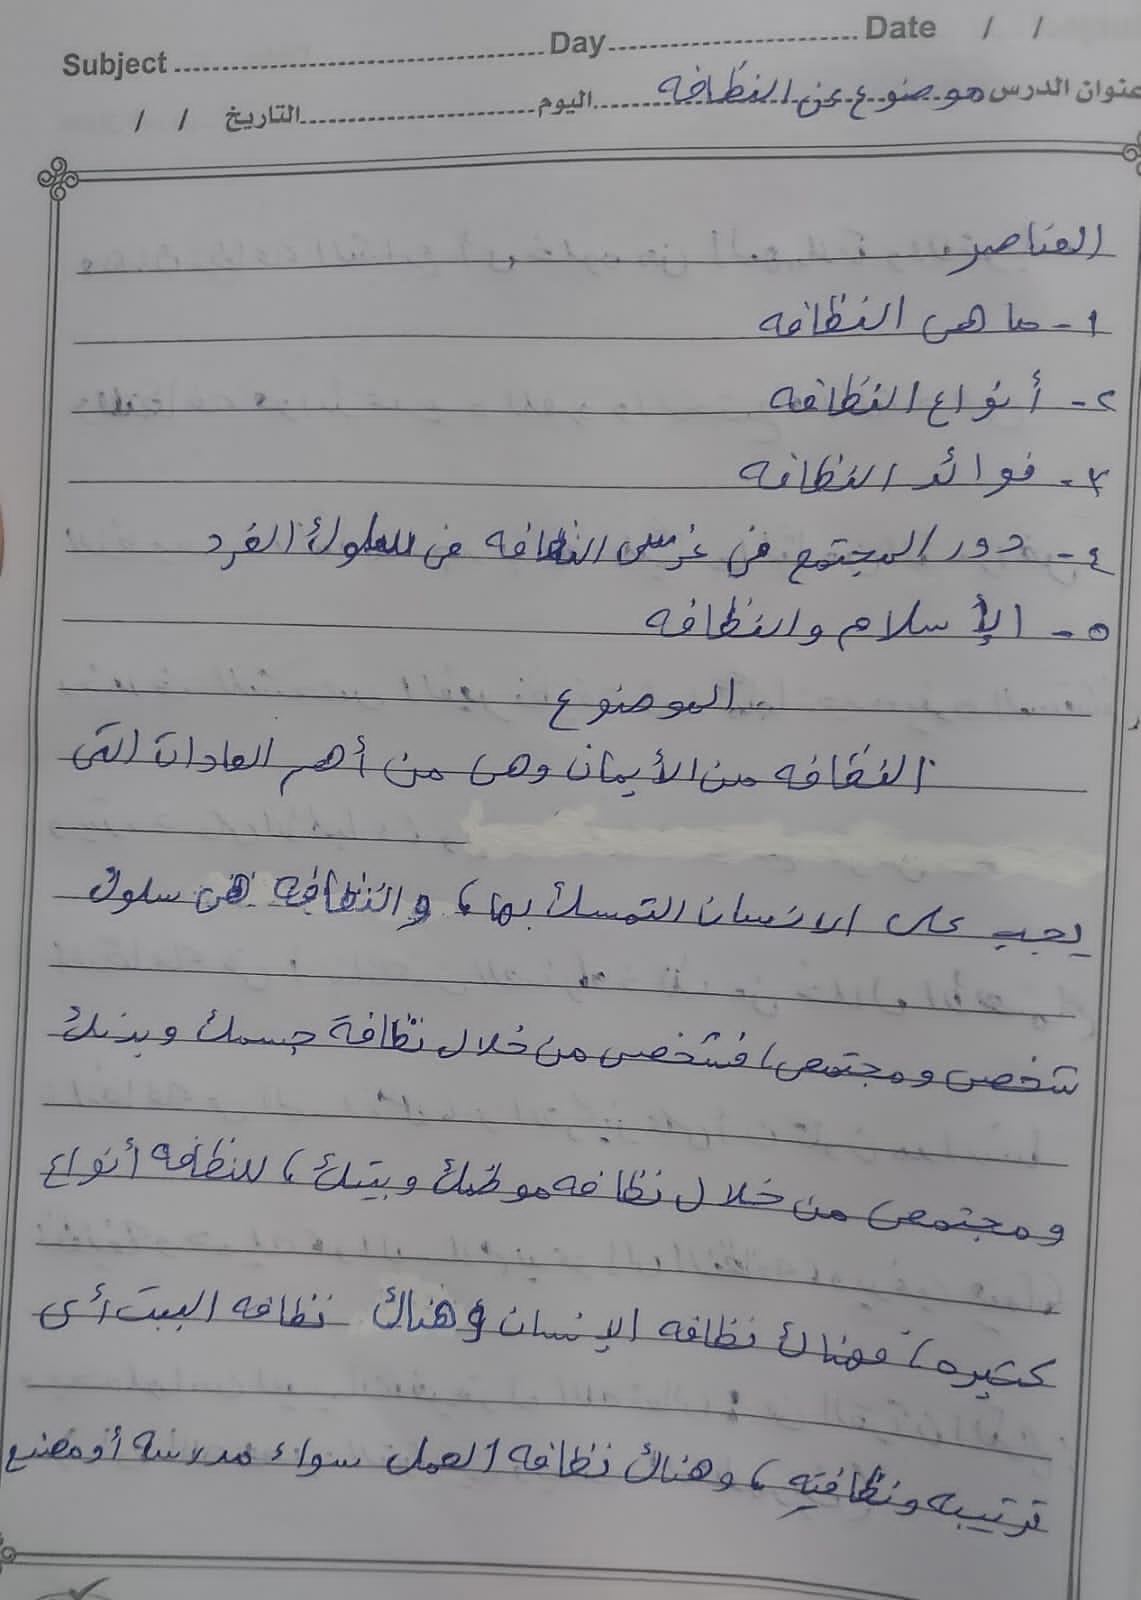 Subject Day Date / /
عنوان الدرس موضوع عن النظافه اليوم التاريخ / /
العناصر
١- ما هى النظافه
٢- أنواع النظافه
٣- فوائد النظافه
٤- دور المجتمع فى غرس النظافه فى سلوك الفرد
٥- الإسلام والنظافه
الموضوع
النظافه من الأيمان وهى من أهم العادات التى
يجب على الانسان التمسك بها، والنظافه هى سلوك
شخصى ومجتمعى، فشخصى من خلال نظافة جسمك وبدنك
ومجتمعى من خلال نظافه موطنك وبيتك، للنظافه أنواع
كثيره، فهناك نظافه الإنسان وهناك نظافه البيت أى
ترتيبه ونظافته، وهناك نظافه العمل سواء مدرسه أو مصنع